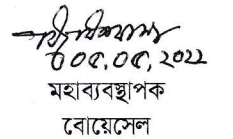 ০৫,০৫,২০২২
মহাব্যবস্থাপক
বোয়েসেল